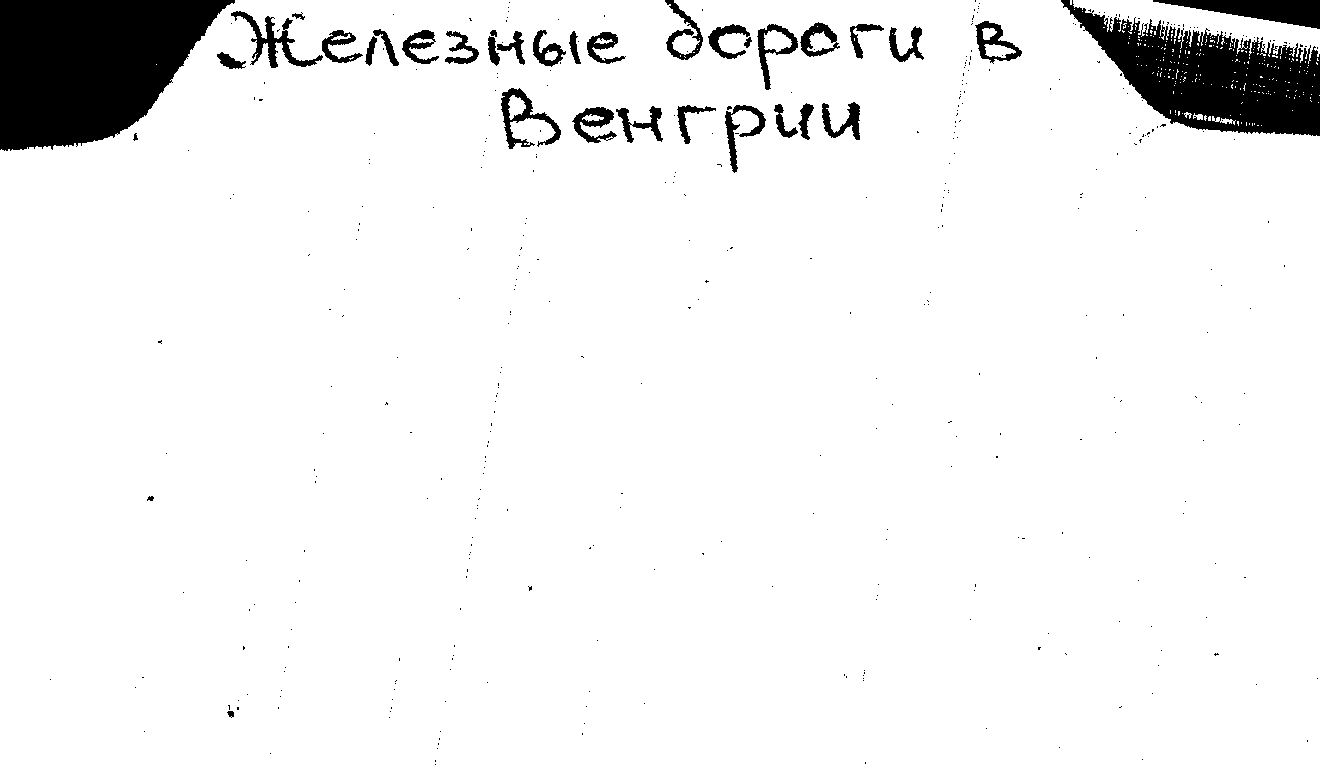 Железные дороги в
Венгрии